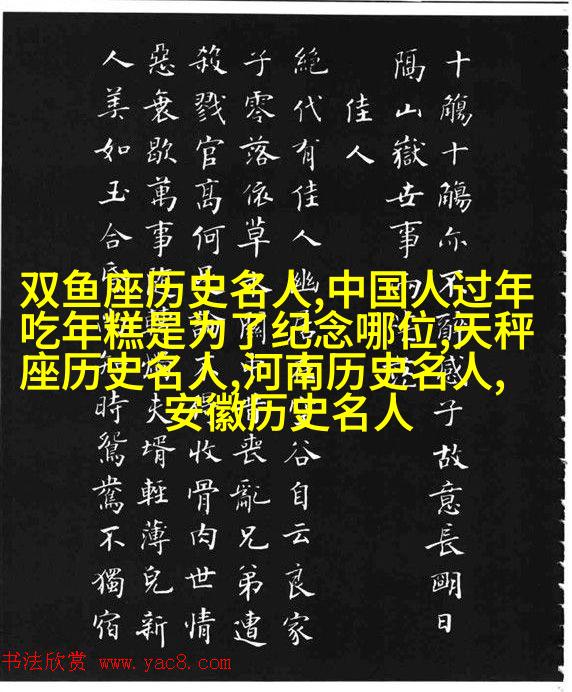 十觴十觴亦不醉感子故意長朙日
隔山嶽世事
佳人
絕代有佳人幽居空谷自云良家
子零落依草木關中昔喪亂兄弟遭
殺戮官高何不得收骨肉世情
惡衰歇萬事轉燭夫壻輕薄兒新
人美如玉合昏知時鴛鴦不獨宿
双鱼座历史名人,中国人过年
吃年糕是为了纪念哪位,天秤
座历史名人,河南历史名人,
安徽历史名人
书法欣赏 www.yac8.com